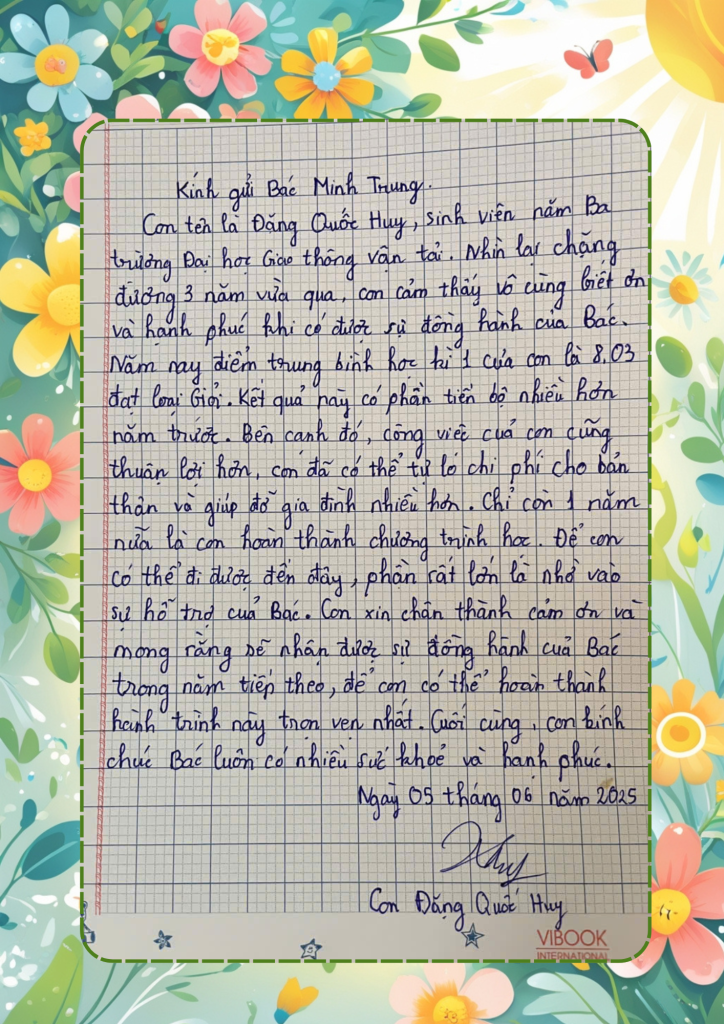 Kính gửi Bác Minh Trung.
Con tên là Đặng Quốc Huy, sinh viên năm Ba
trường Đại học Giao thông vận tải. Nhìn lại chặng
đường 3 năm vừa qua, con cảm thấy vô cùng biết ơn
và hạnh phúc khi có được sự đồng hành của Bác.
Năm nay điểm trung bình học kì 1 của con là 8.03
đạt loại Giỏi. Kết quả này có phần tiến bộ nhiều hơn
năm trước. Bên cạnh đó, công việc của con cũng
thuận lợi hơn, con đã có thể tự lo chi phí cho bản
thân và giúp đỡ gia đình nhiều hơn. Chỉ còn 1 năm
nữa là con hoàn thành chương trình học. Để con
có thể đi được đến đây, phần rất lớn là nhờ vào
sự hỗ trợ của Bác. Con xin chân thành cảm ơn và
mong rằng sẽ nhận được sự đồng hành của Bác
trong năm tiếp theo, để con có thể hoàn thành
hành trình này trọn vẹn nhất. Cuối cùng, con kính
chúc Bác luôn có nhiều sức khoẻ và hạnh phúc.
Ngày 05 tháng 06 năm 2025
Huy
Con Đặng Quốc Huy
VIBOOK
INTERNATIONAL